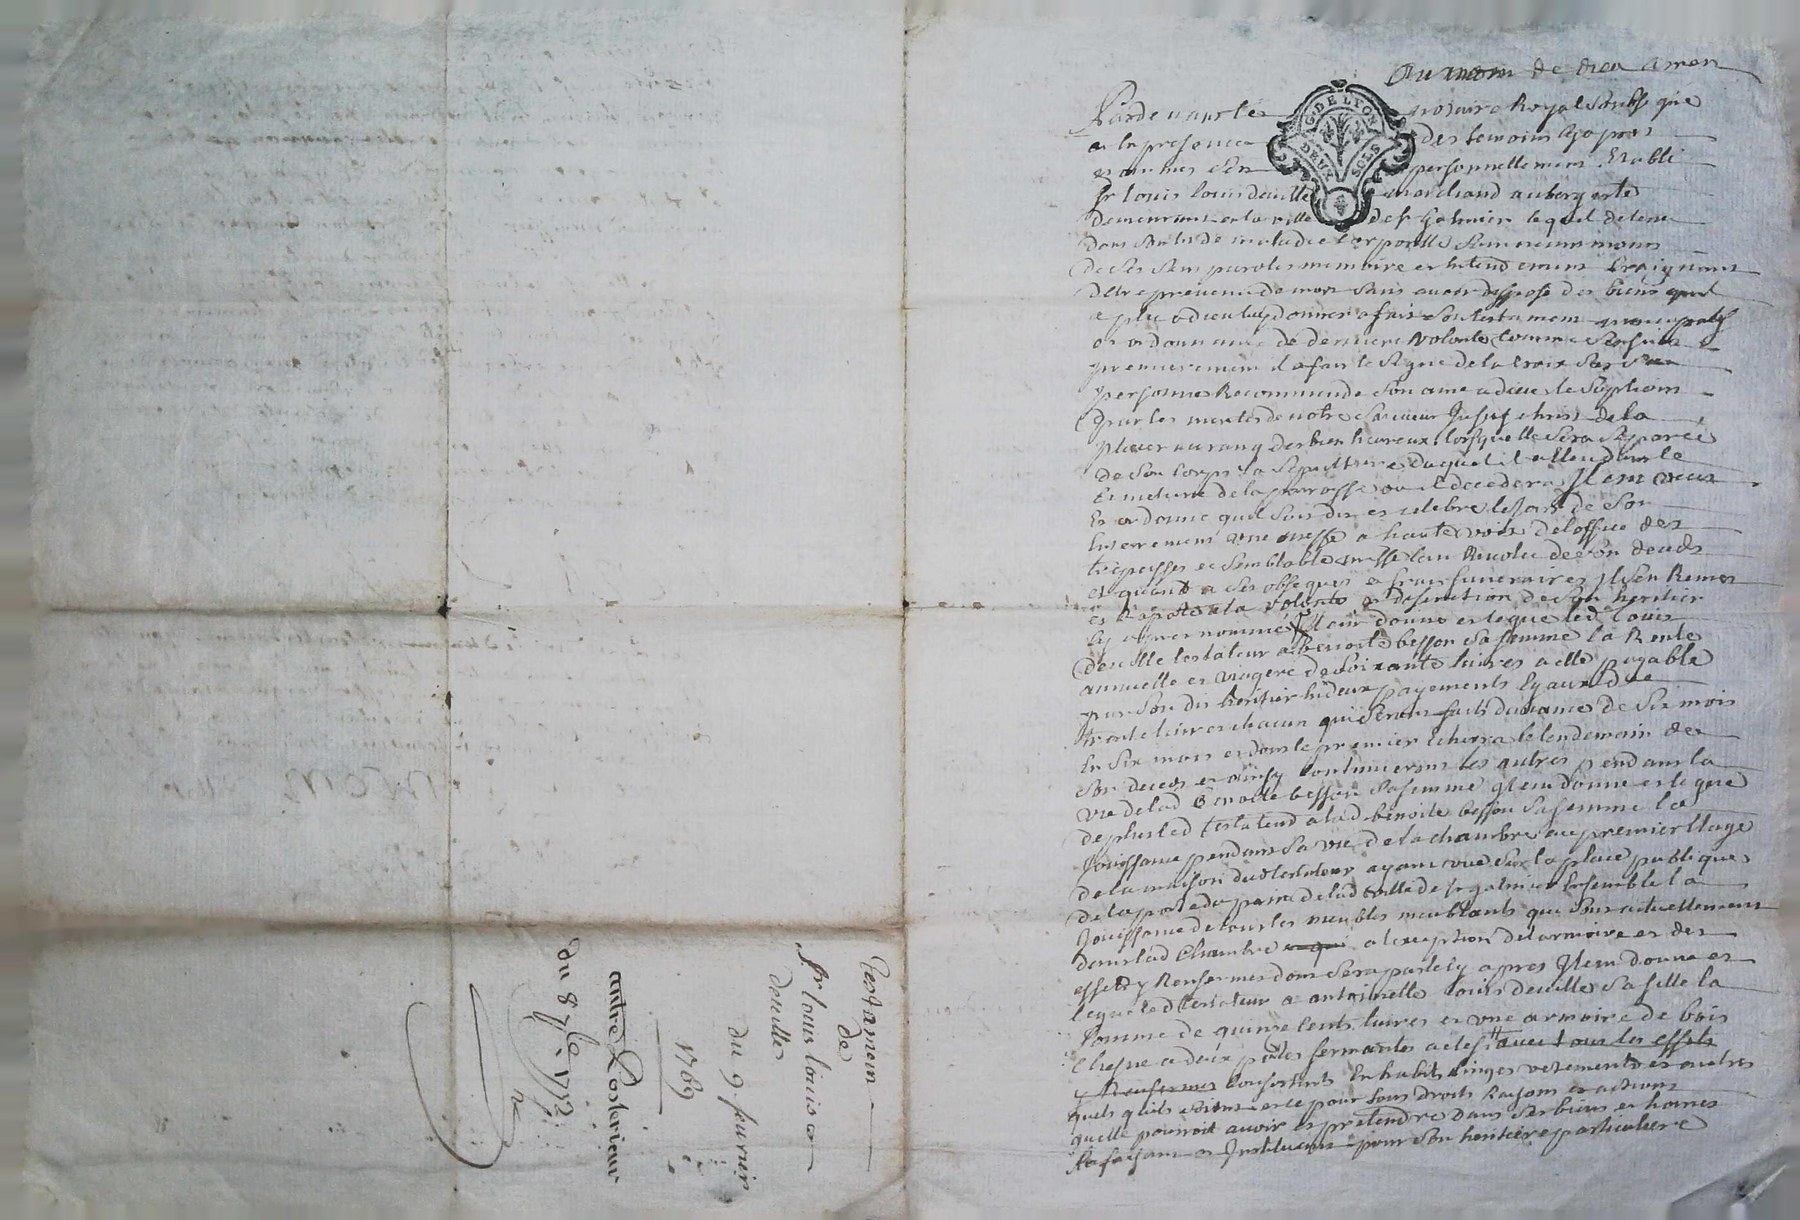 Au nom de dieu amen
Pardevant le notaire Royal soubs que
en la presence des temoins cy apres
personnellement Etabli
Sr louis louis deville marchand aubergeste
demeurant en la ville de st Galmier lequel detenu
dans son lit de maladie corporelle sain neanmoins
de ses sens parolles memoire et entendement Craignant
detre prevenu de mort sans avoir disposé des biens quil
a plu a dieu luy donner a fait son testament
et ordonnance de derniere volonté comme sensuit
premierement il a fait le signe de la croix sur sa
personne Recommande son ame a dieu le supliant
par les merites de notre sauveur Jesus christ de la
placer au rang des bien heureux lorsquelle sera separée
de son corps la sepulture duquel il
cimetiere de la parroisse ou il decedera Item veut
Et ordonne quil soit dit et celebré le jour de son
Enterrement une messe a haute voix de loffice des
trepasses et semblable messe lan Revolu de son deceds
et quant a ses obseques et frais funeraires Il sen Remet
et Raporte a la volonté et discretion de son heritier
cy apres nommé Item donne et legue led louis
deville testateur a benoite besson sa femme la Rente
annuelle et viagere de soixante livres a elle payable
par son dit heritier en deux payements Egaux de
trente livres chacun qui seront faits davance de six mois
En six mois et dont le premier Echerra le lendemain de
son deceds et ainsy continueront les autres pendant la
vie de lad Benoite besson sa femme Item donne et legue
de plus led testateur a lad benoite besson sa femme la
Jouissance pendant sa vie de la chambre au premier Etage
de la maison dud testateur ayant vue sur la place publique
de la porte du pain de lad ville de st galmier Ensemble la
Jouissance de tous les meubles meublants qui sont actuellement
dans lad Chambre a lexception de larmoire et des
effets y Renfermes dont sera parlé cy apres Item donne et
legue led testateur a antoinette louis deville sa fille la
somme de quinze cents livres et une armoire de bois
Chesne a deux portes fermantes a clef avec tous les effets
Renfermes consistants En habits linges vetements et autres
quels quils soient et ce pour tous droits Raisons et actions
quelle pourroit avoir et pretendre dans ses biens et hoirie
la faisant et Instituant pour son heritiere particuliere
Testament
de
Sr louis louis
deville
du 9 fevrier
1769
entre Posterieur
du 8 7bre 1772